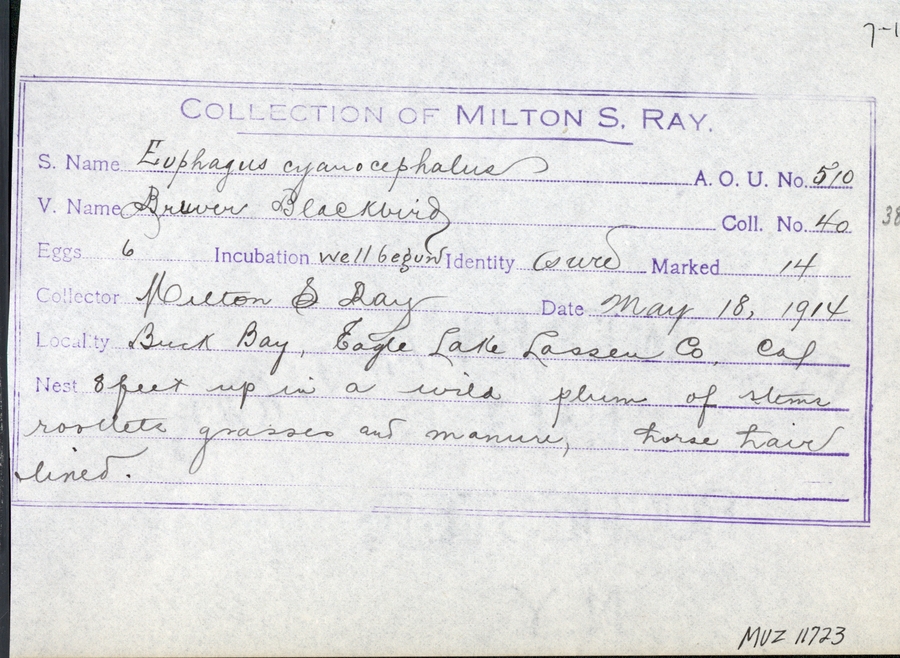 7-1
COLLECTION OF MILTON S. RAY.
S. Name Euphagus cyanocephalus A. O. U. No. 510
V. Name Brewer Blackbird Coll. No. 40
38
Eggs 6 Incubation well begun Identity sure Marked 14
Collector Milton S Ray Date May 18, 1914
Locality Buck Bay, Eagle Lake Lassen Co, Cal
Nest 8 feet up in a wild plum of stems
rootlets grasses and manure, horse hair
lined.
MVZ 11723